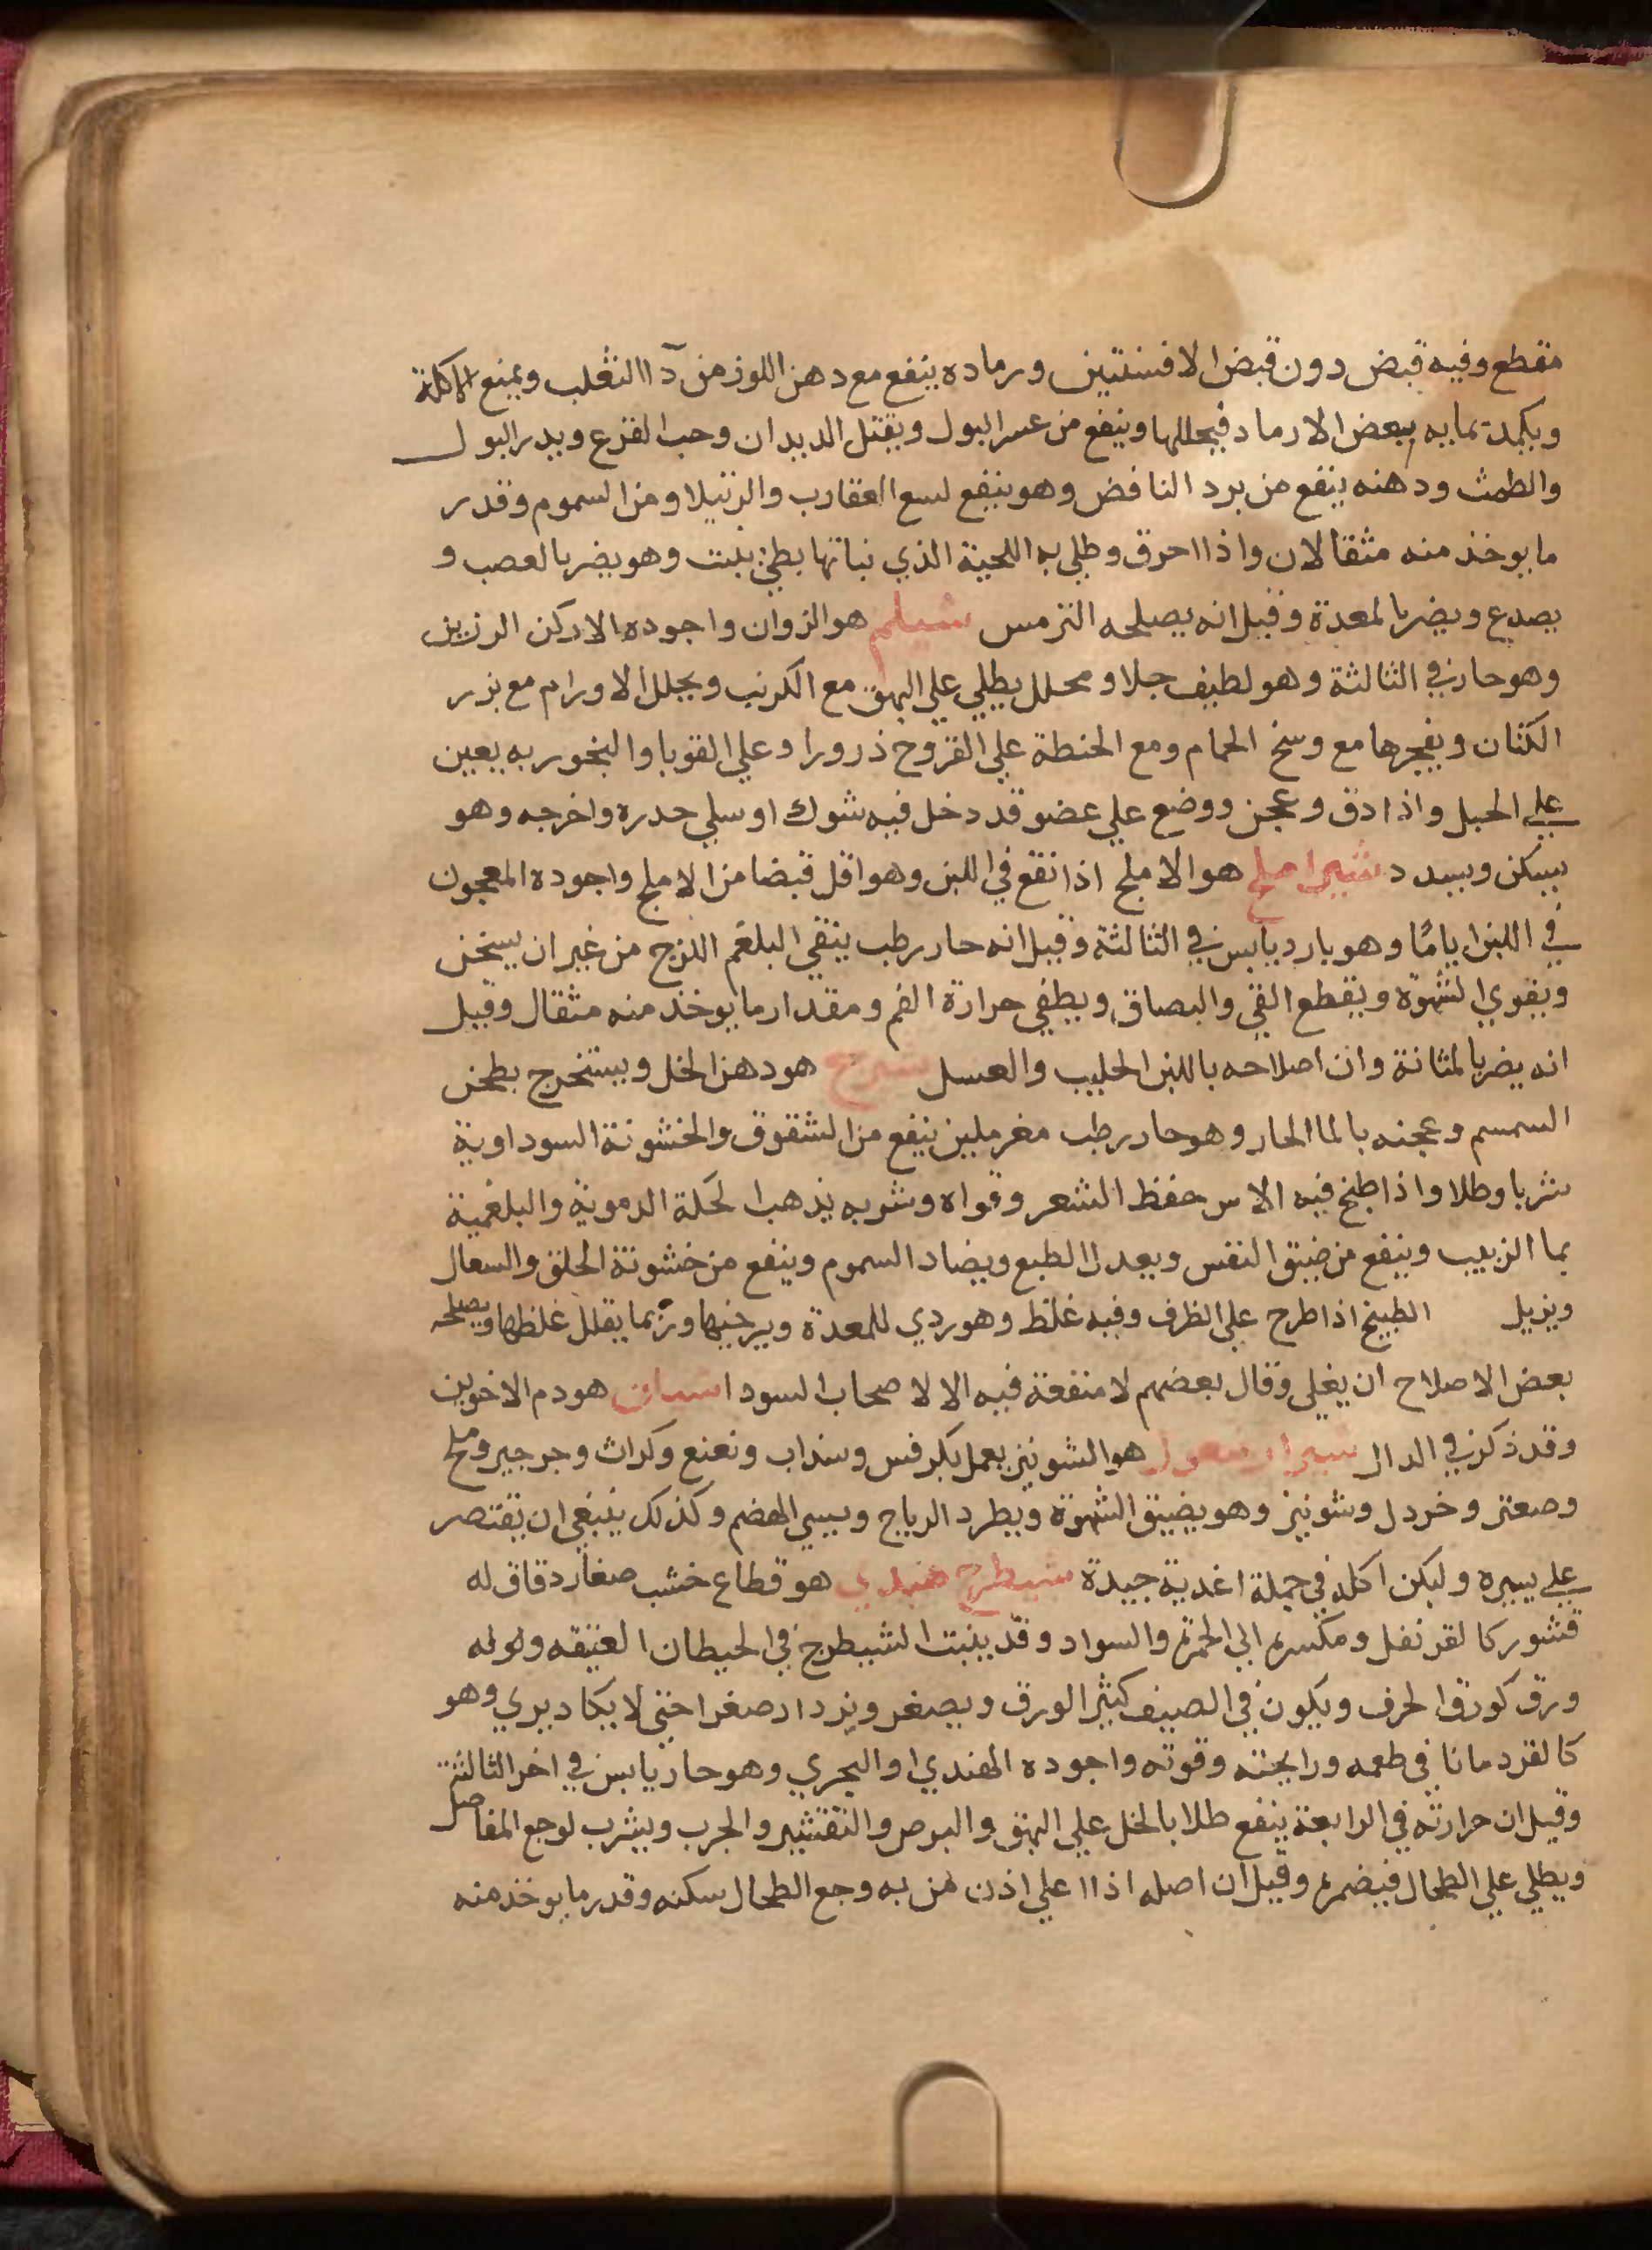 مقطع وفيه قبض دون قبض الافسنتين ورماده ينفع مع دهن اللوز من دآ االثعلب ويمنع الاكلة
ويكمد بمايه ببعض الارماد فيحللها وينفع من عسر البول ويقتل الديدان وحب القرع ويدر البول
والطمث ودهنه ينفع من برد النافض وهو ينفع لسع العقارب والرتيلا ومن السموم وقدر
ما يوخذ منه مثقالان واذا احرق وطلي به اللحية الذي نباتها بطي نبتت وهو يضر بالعصب و
يصدع ويضر بالمعدة وقيل انه يصلحه الترمس شيلم هو الزوان واجوده الادكن الرزين
وهو حار في الثالثة وهو لطيف جلا ومحلل يطلي علي البهق مع الكرنب ويحلل الاورام مع بزر
الكتان ويفجرها مع وسخ الحمام ومع الحنطة علي القروح ذرورا وعلي القوبا والبخور به يعين
علي الحبل واذا دق وعجن ووضع علي عضو قد دخل فيه شوك او سلي حدره واخرجه وهو
يسكن ويسدد شيراملج هو الاملج اذا نقع في اللبن وهو اقل قبضا من الاملج واجوده المعجون
في اللبن ايامًا وهو بارد يابس في الثالثة وقيل انه حار رطب ينقي البلغم اللزج من غير ان يسخن
ويقوي الشهوة ويقطع القي والبصاق ويطفي حرارة الفم ومقدار ما يوخذ منه مثقال وقيل
انه يضر بالمثانة وان اصلاحه باللبن الحليب والعسل شيرج هو دهن الخل ويستخرج بطحن
السمسم وعجنه بالما الحار وهو حار رطب مغر ملين ينفع من الشقوق والخشونة السوداوية
شربا وطلا واذا طبخ فيه الاس حفظ الشعر وقواه وشربه يذهب الحكة الدموية والبلغمية
بما الزبيب وينفع من ضيق النفس ويعدل الطبع ويضاد السموم وينفع من خشونة الحلق والسعال
ويزيل الطبيخ اذا طرح علي الظرف وفيه غلظ وهو ردي للمعدة ويرخيها وربما يقلل غلظها ويصلحه
بعض الاصلاح ان يغلي وقال بعضهم لا منفعة فيه الا لاصحاب السودا شيان هو دم الاخوين
وقد ذكر في الدال هو الشونيز يعمل بكرفس وسذاب ونعنع وكراث وجرجير وملح
وصعتر وخردل وشونيز وهو يضيق الشهوة ويطرد الرياح ويسيي الهضم وكذلك ينبغي ان يقتصر
علي يسيره وليكن اكله في جملة اغدية جيدة شيطرج هندي هو قطاع خشب صغار دقاق له
قشور كالقرنفل ومكسره الي الحمرة والسواد وقد ينبت الشيطرج في الحيطان العتيقه وله
ورق كورق الحرف ويكون في الصيف كثير الورق ويصغر ويزداد صغرا حتي لا يكاد يري وهو
كالقردمانا في طعمه ورايحته وقوته واجوده الهندي او البحري وهو حار يابس في اخر الثالثة
وقيل ان حرارته في الرابعة ينفع طلا بالخل علي البهق والبرص والتقشير والجرب ويشرب لوجع المفاصل
ويطلي علي الطحال فيضمره وقيل ان اصله اذا ا علي اذن من به وجع الطحال سكنه وقدر ما يوخذ منه